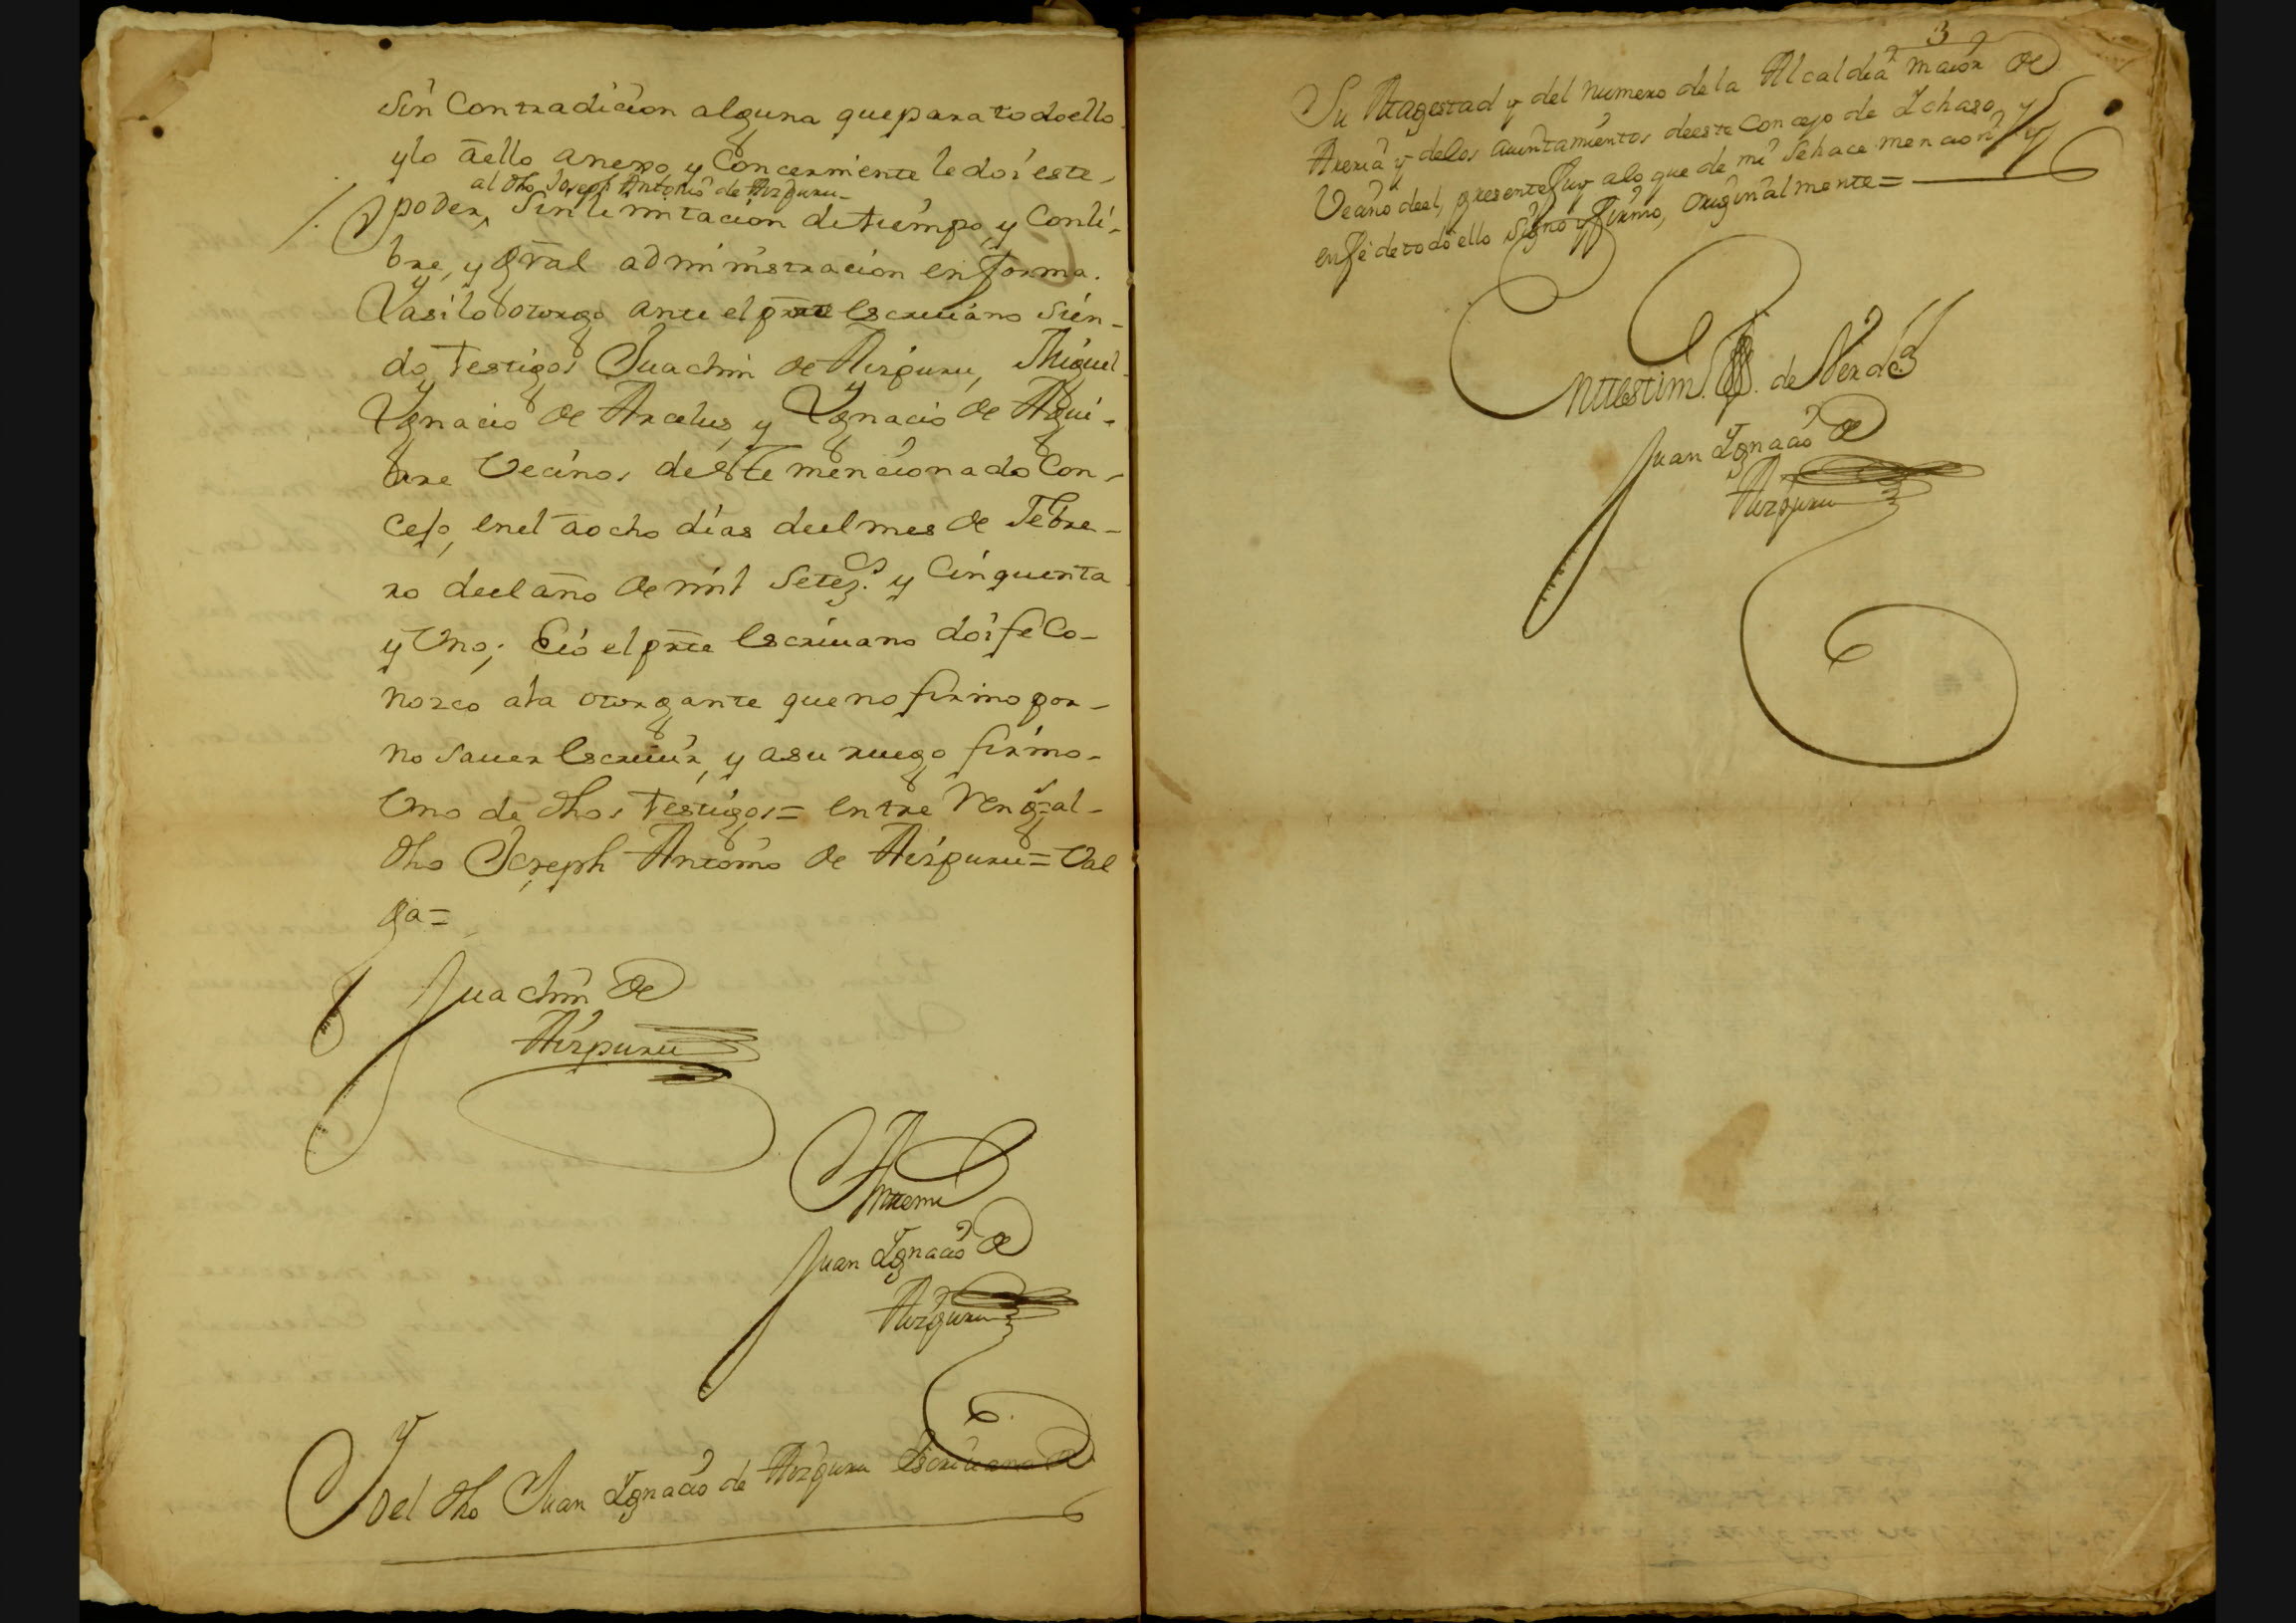 Sin Contradicion alguna que para todo ello
y lo a ello anexo y Concerniente le doi este
al dho Joseph Antonio de Aizpuru
poder, Sin limitacion de tiempo, y Con li-
bre, y gral administracion en forma.
Y asi lo otorgo ante el prte escriuano Sien-
do testigos Juachin de Aizpuru, Miguel
Ygnacio de Arcelus, y Ygnacio de Agui-
rre Vecinos deste mencionado Con-
cejo, en el a ocho dias de el mes de Febre-
ro de el año de mil Setez.s y Cinquenta
y Uno; E io el prte escriuano doi fe Co-
nozco a la otorgante que no firmo por-
no Sauer escriuir, y a su ruego firmo-
Uno de dhos testigos = entre Reng.s = al-
dho Joseph Antonio de Aizpuru = Val
ga =
Juachin de
Aizpuru
Ante mi
Juan Ygnacio de
Aizpuru
Yo el dho Juan Ygnacio de Aizpuru escriuano de
3
Su Magestad y del numero de la Alcaldia maior de
Areria y de los aiuntamientos de este Concejo de Ichaso, y
Vecino de el, presente fuy a lo que de mi Se hace mencion, y
en fe de todo ello Signo y firmo, originalmente =
En testim.o de Verdad
Juan Ygnacio de
Aizpuru